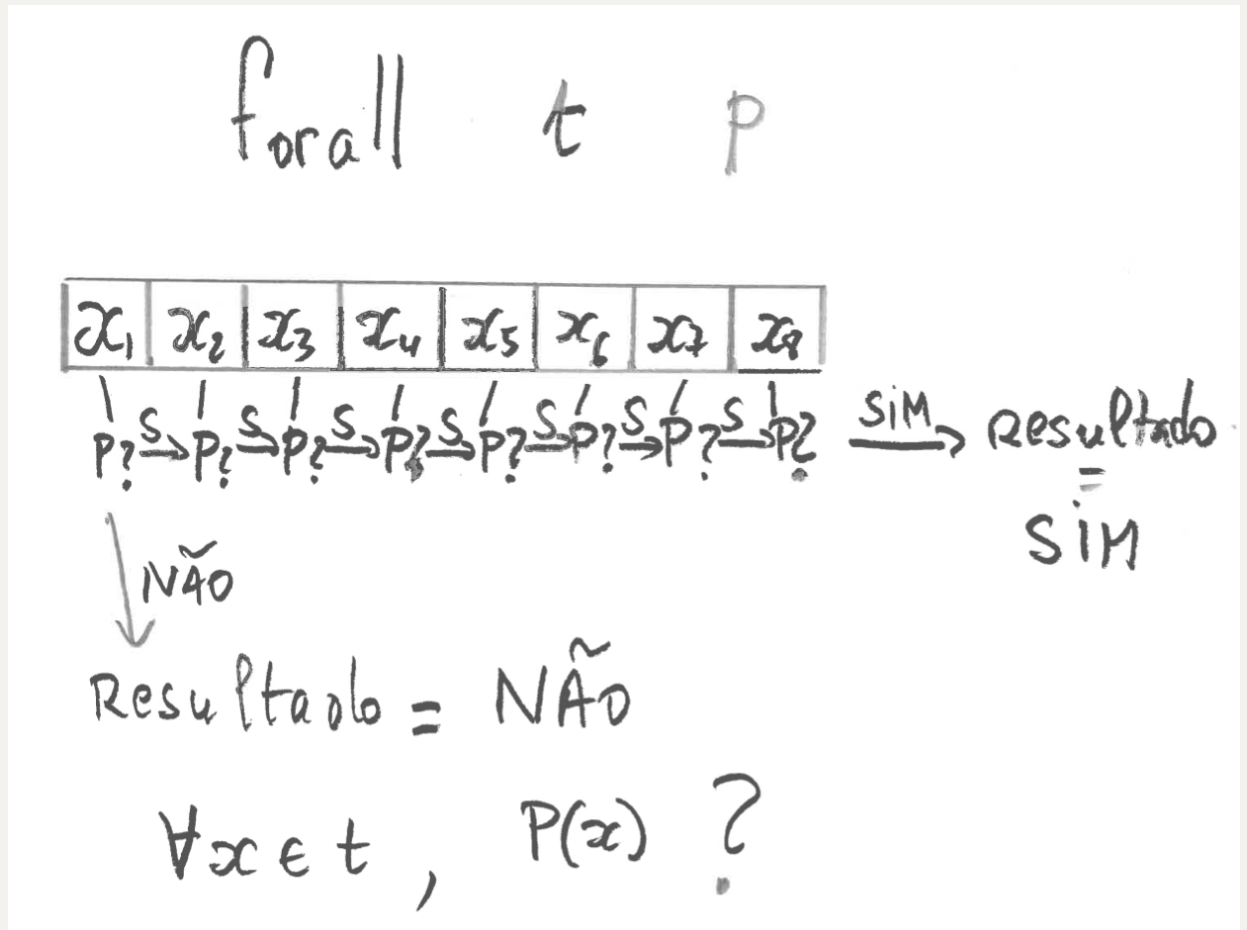 forall t p
x₁ x₂ x₃ x₄ x₅ x₆ x₇ x₈
P? S P? S P? S P? S P? S P? S P? S P? SiM Resultado
=
SiM
NÃO
Resultado = NÃO
∀x ∈ t, P(x) ?